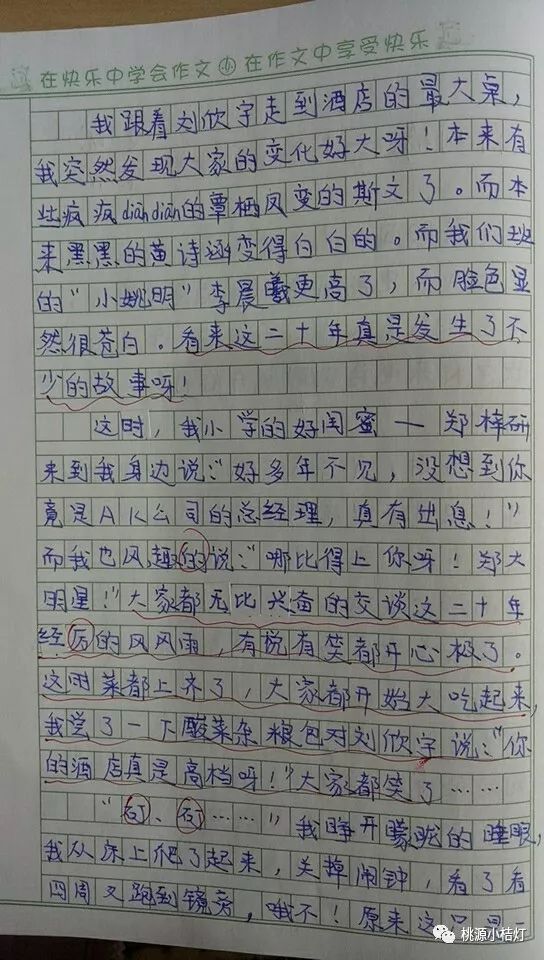 在快乐中学会作文 在作文中享受快乐
我跟着刘欣宇走到酒店的最大桌，
我突然发现大家的变化好大呀！本来有
些疯疯diān diān的覃栖凤变的斯文了。而本
来黑黑的黄诗涵变得白白的。而我们班
的“小姚明”李晨曦更高了，而脸色显
然很苍白。看来这二十年真是发生了不
少的故事呀！
这时，我小学的好闺蜜一郑梓研
来到我身边说：“好多年不见，没想到你
竟是AK公司的总经理，真有出息！”
而我也风趣的说：“哪比得上你呀！郑大
明星！”大家都无比兴奋的交谈这二十年
经历的风风雨，有说有笑都开心极了。
这时菜都上齐了，大家都开始大吃起来，
我尝了一下酸菜杂粮包对刘欣宇说：“你
的酒店真是高档呀！”大家都笑了……
“叮、叮……”我睁开朦胧的睡眼，
我从床上爬了起来，关掉闹钟，看了看
四周又跑到镜旁，哦不！原来这只是一
桃源小桔灯